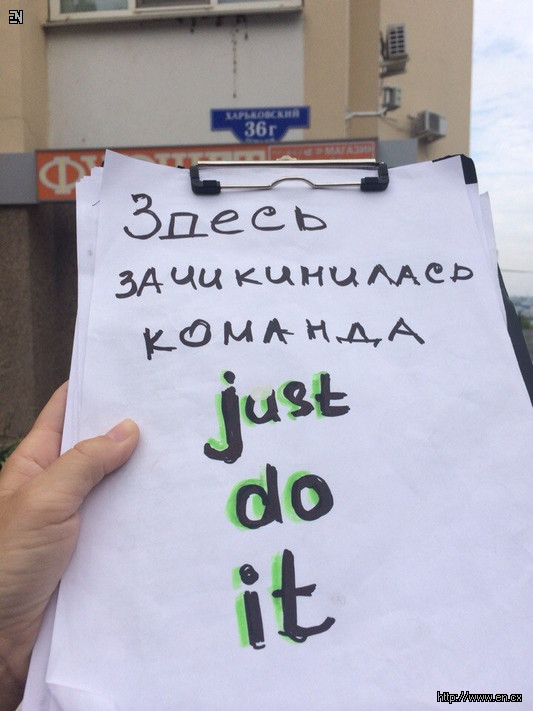 EN
ХАРЬКОВСКИЙ
36г
МАГАЗИН
Здесь
зачикинилась
команда
just
do
it
http://www.en.cx